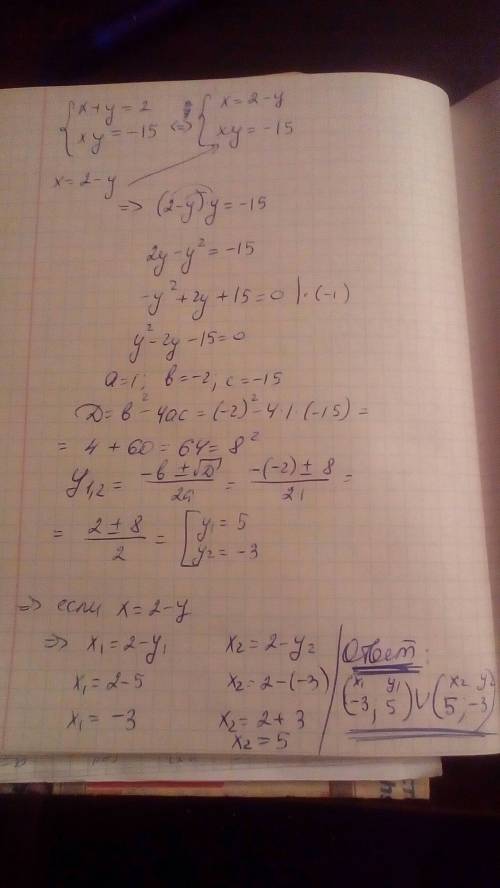 { x+y=2 <=> { x=2-y
{ xy=-15 { xy=-15
x=2-y
=> (2-y)y=-15
2y-y²=-15
-y²+2y+15=0 |·(-1)
y²-2y-15=0
a=1; b=-2; c=-15
D=b²-4ac=(-2)²-4·1·(-15)=
=4+60=64=8²
y1,2 = (-b±√D)/2a = (-(-2)±8)/2·1 =
= (2±8)/2 = [ y1=5
[ y2=-3
=> если x=2-y
=> x1=2-y1 x2=2-y2
x1=2-5 x2=2-(-3)
x1=-3 x2=2+3
x2=5
Ответ:
x1 y1 x2 y2
(-3, 5)∪(5,-3)